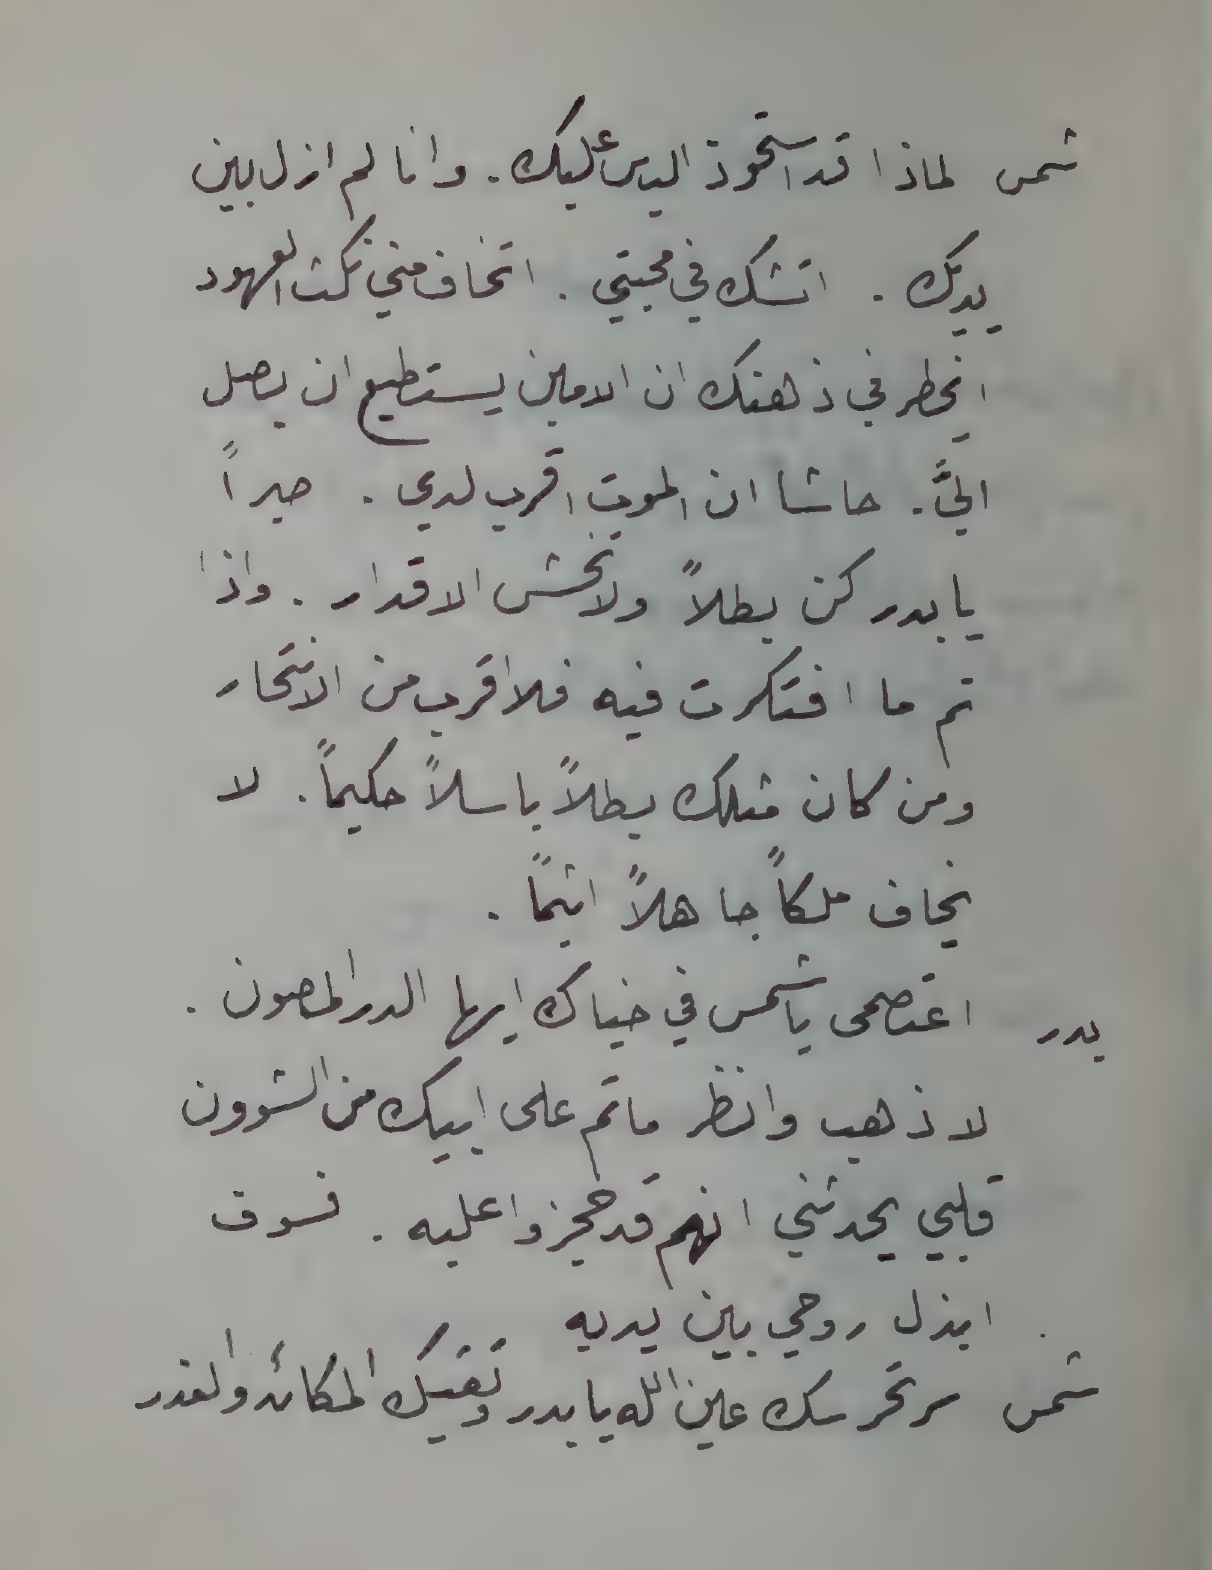 شمس لماذا قد استحوذ اليأس عليك . وانا لم ازل بين
يديك . اتشك في محبتي . اتخاف مني نكث العهود
ايخطر في ذهنك ان الامين يستطيع ان يصل
اليَّ . حاشا ان الموت اقرب لدي . صبراً
يا بدر كن بطلاً ولا تخش الاقدار . واذا
تم ما افتكرت فيه فلا اقرب من الانتحار
ومن كان مثلك بطلاً باسلاً حكيماً . لا
يخاف ملكاً جاهلاً اثيماً .
بدر اعتصمى يا شمس في خباك ايها الدر المصون .
لاذهب وانظر ما تم على ابيك من الشوون
قلبي يحدثني انهم قد حجزوا عليه . فسوف
ابذل روحي بين يديه .
شمس سر تحرسك عين الله يا بدر وتقيك المكائد والغدر